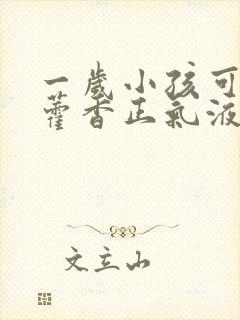 一歲小孩可
藿香正氣液
文立山